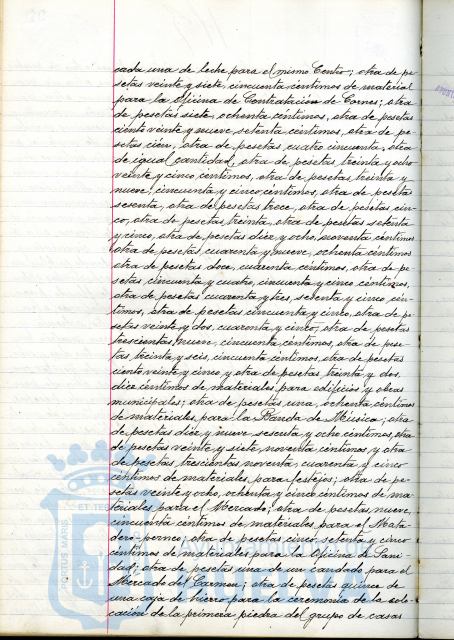 cada una de leche para el mismo Centro; otra de pe-
setas veinte y siete, cincuenta céntimos de material
para la Oficina de Contratación de Carnes; otra
de pesetas siete, ochenta céntimos, otra de pesetas
ciento veinte y nueve, setenta céntimos, otra de pe-
setas cien, otra de pesetas cuatro cincuenta, otra
de igual cantidad, otra de pesetas treinta y ocho
veinte y cinco céntimos, otra de pesetas treinta y
nueve, cincuenta y cinco céntimos, otra de pesetas
sesenta, otra de pesetas trece, otra de pesetas cin-
co, otra de pesetas treinta, otra de pesetas setenta
y cinco, otra de pesetas diez y ocho, noventa céntimos
otra de pesetas cuarenta y nueve, ochenta céntimos
otra de pesetas doce, cuarenta céntimos, otra de pe-
setas, cincuenta y cuatro, cincuenta y cinco céntimos,
otra de pesetas cuarenta y tres, setenta y cinco, cén-
timos, otra de pesetas cincuenta y cinco, otra de pe-
setas veinte y dos, cuarenta y cinco, otra de pesetas
trescientas nueve, cincuenta céntimos, otra de pese-
tas, treinta y seis, cincuenta céntimos, otra de pesetas
ciento veinte y cinco y otra de pesetas treinta y dos,
diez céntimos de materiales, para edificios y obras
municipales; otra de pesetas una, ochenta céntimos
de materiales, para la Banda de Música; otra
de pesetas diez y nueve, sesenta y ocho céntimos, otra
de pesetas veinte y siete, noventa céntimos y otra
de pesetas, trescientas noventa, cuarenta y cinco
céntimos de materiales, para festejos; otra de pe-
setas veinte y ocho, ochenta y cinco céntimos de ma-
teriales para el Mercado; otra de pesetas nueve,
cincuenta céntimos de materiales para el Mata-
dero porneo; otra de pesetas cinco, setenta y cinco
céntimos de materiales para la Oficina de Sani-
dad; otra de pesetas una de un candado para el
Mercado del Carmen; otra de pesetas quince de
una caja de hierro para la ceremonia de la colo-
cación de la primera piedra del grupo de casas